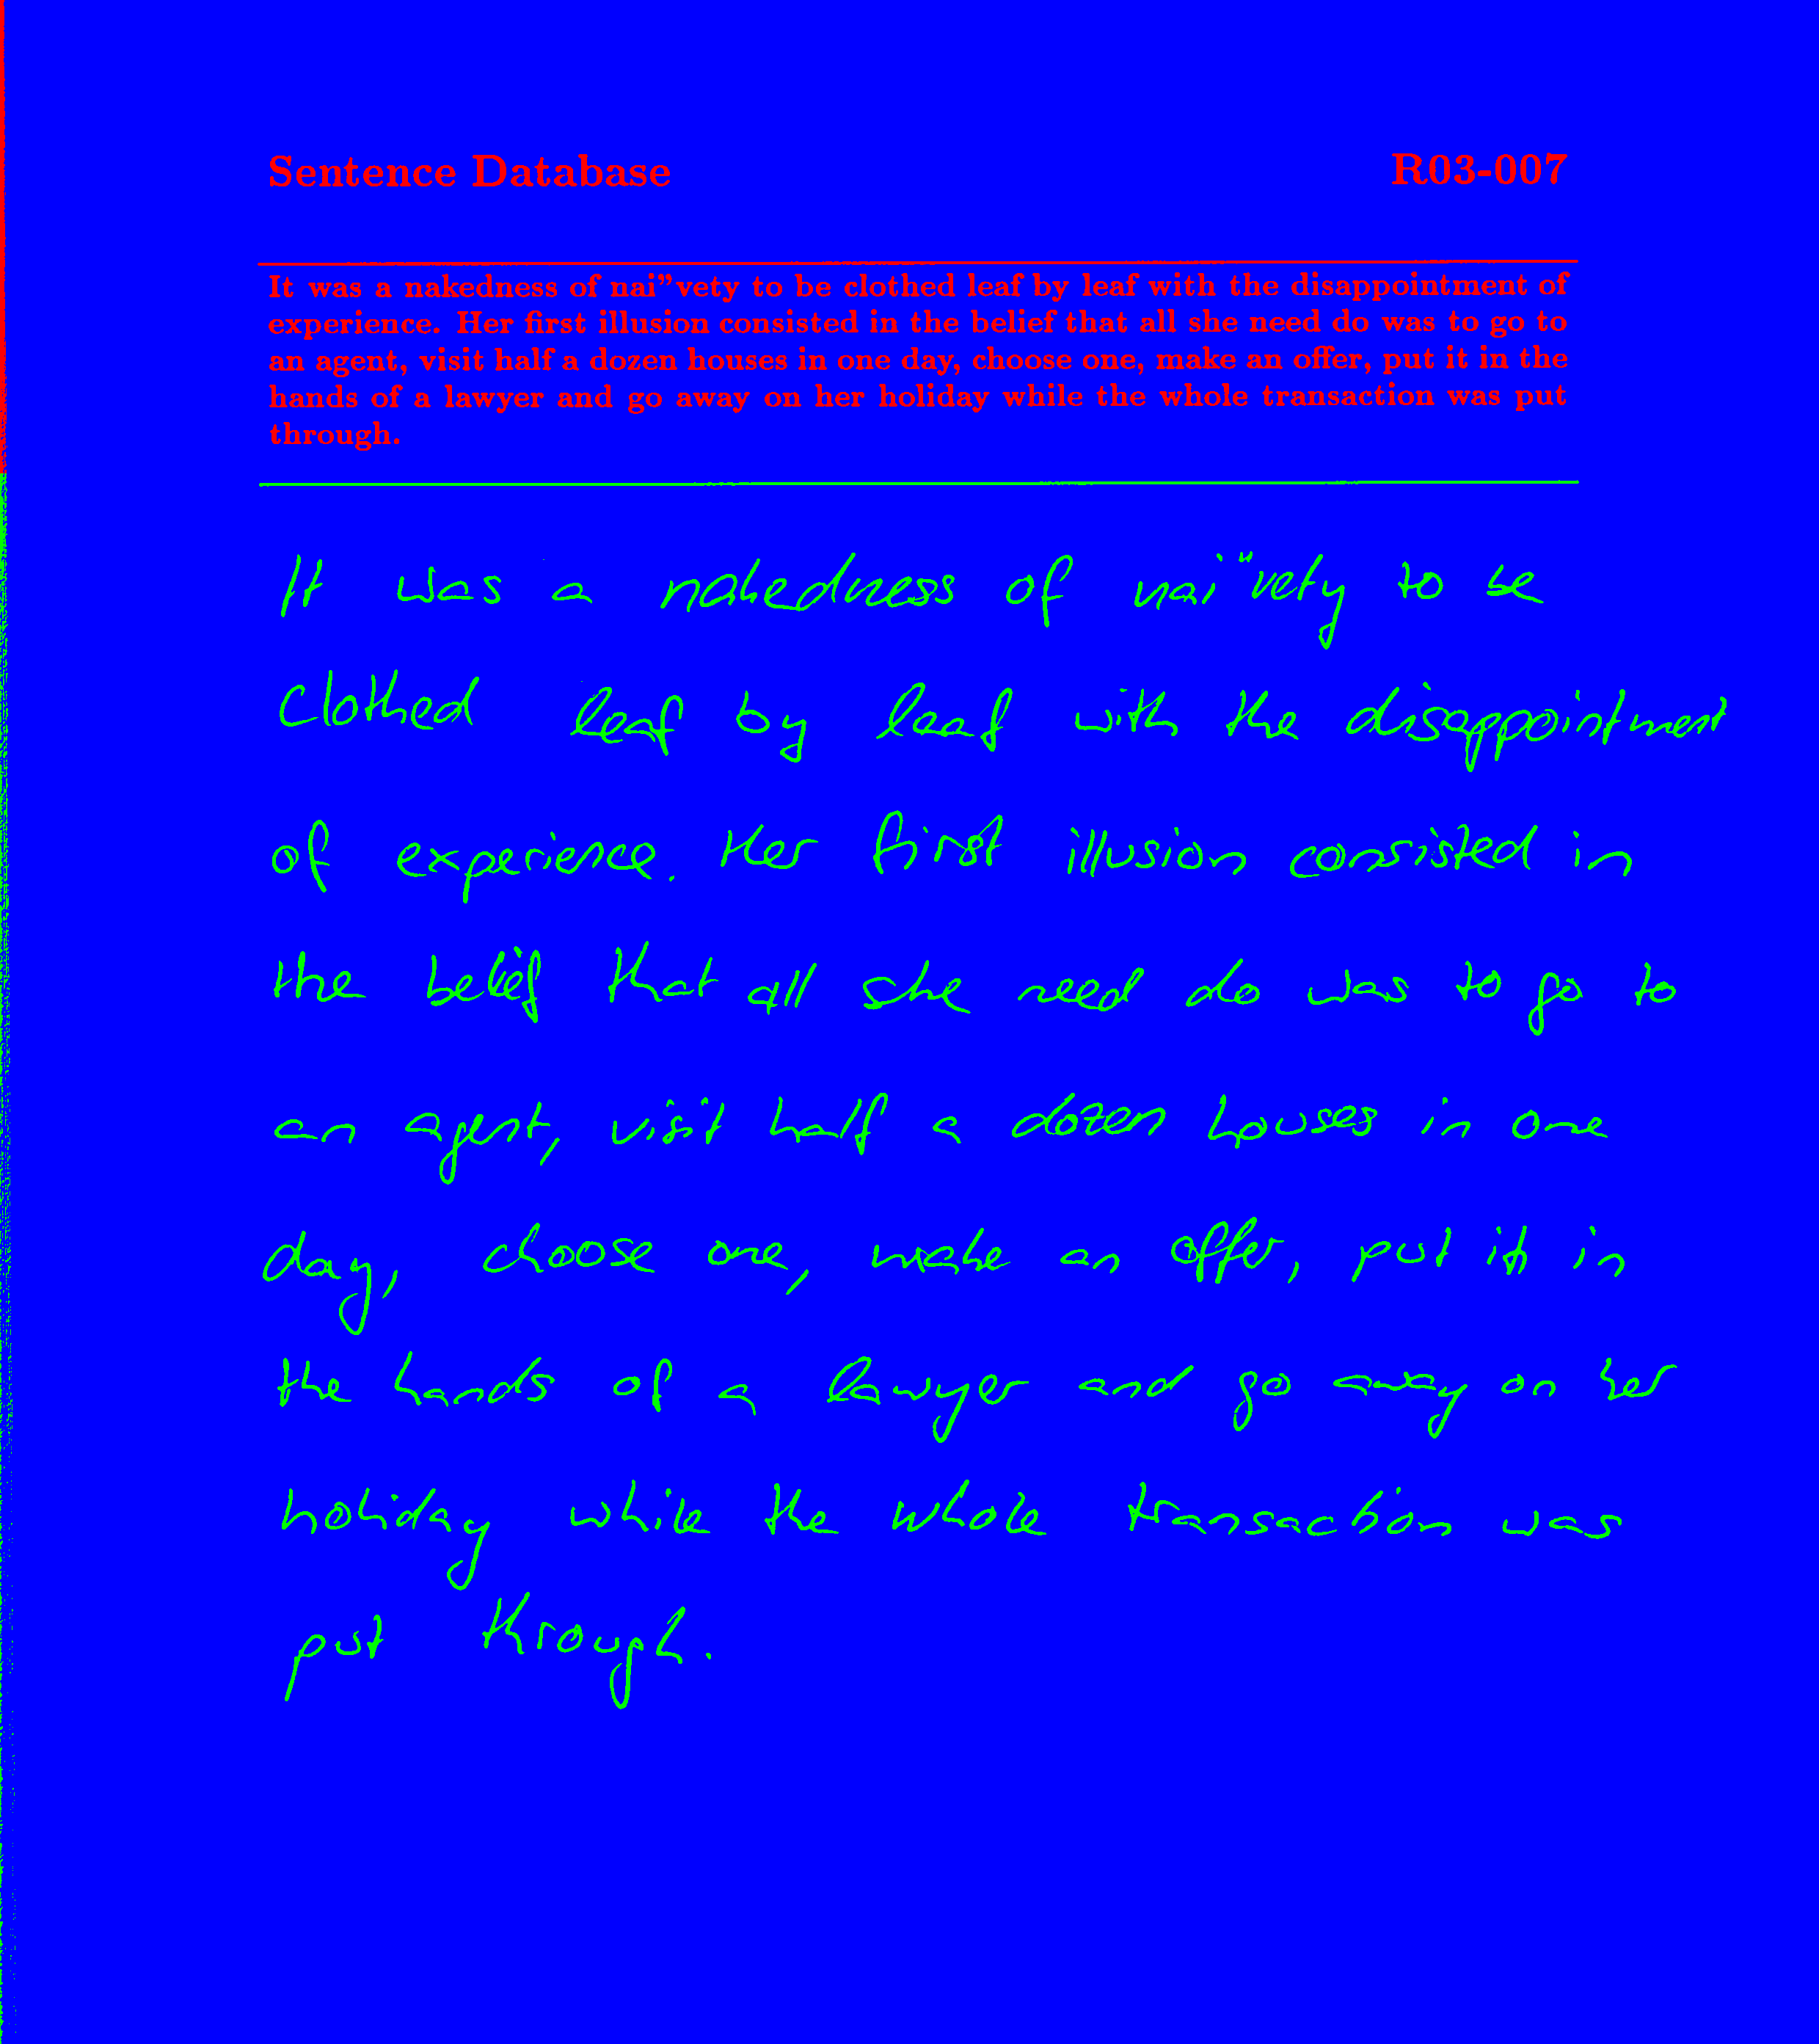 Sentence Database R03-007
It was a nakedness of nai"vety to be clothed leaf by leaf with the disappointment of
experience. Her first illusion consisted in the belief that all she need do was to go to
an agent, visit half a dozen houses in one day, choose one, make an offer, put it in the
hands of a lawyer and go away on her holiday while the whole transaction was put
through.
It was a nakedness of nai"vety to be
clothed leaf by leaf with the disappointment
of experience. Her first illusion consisted in
the belief that all she need do was to go to
an agent, visit half a dozen houses in one
day, choose one, make an offer, put it in
the hands of a lawyer and go away on her
holiday while the whole transaction was
put through.